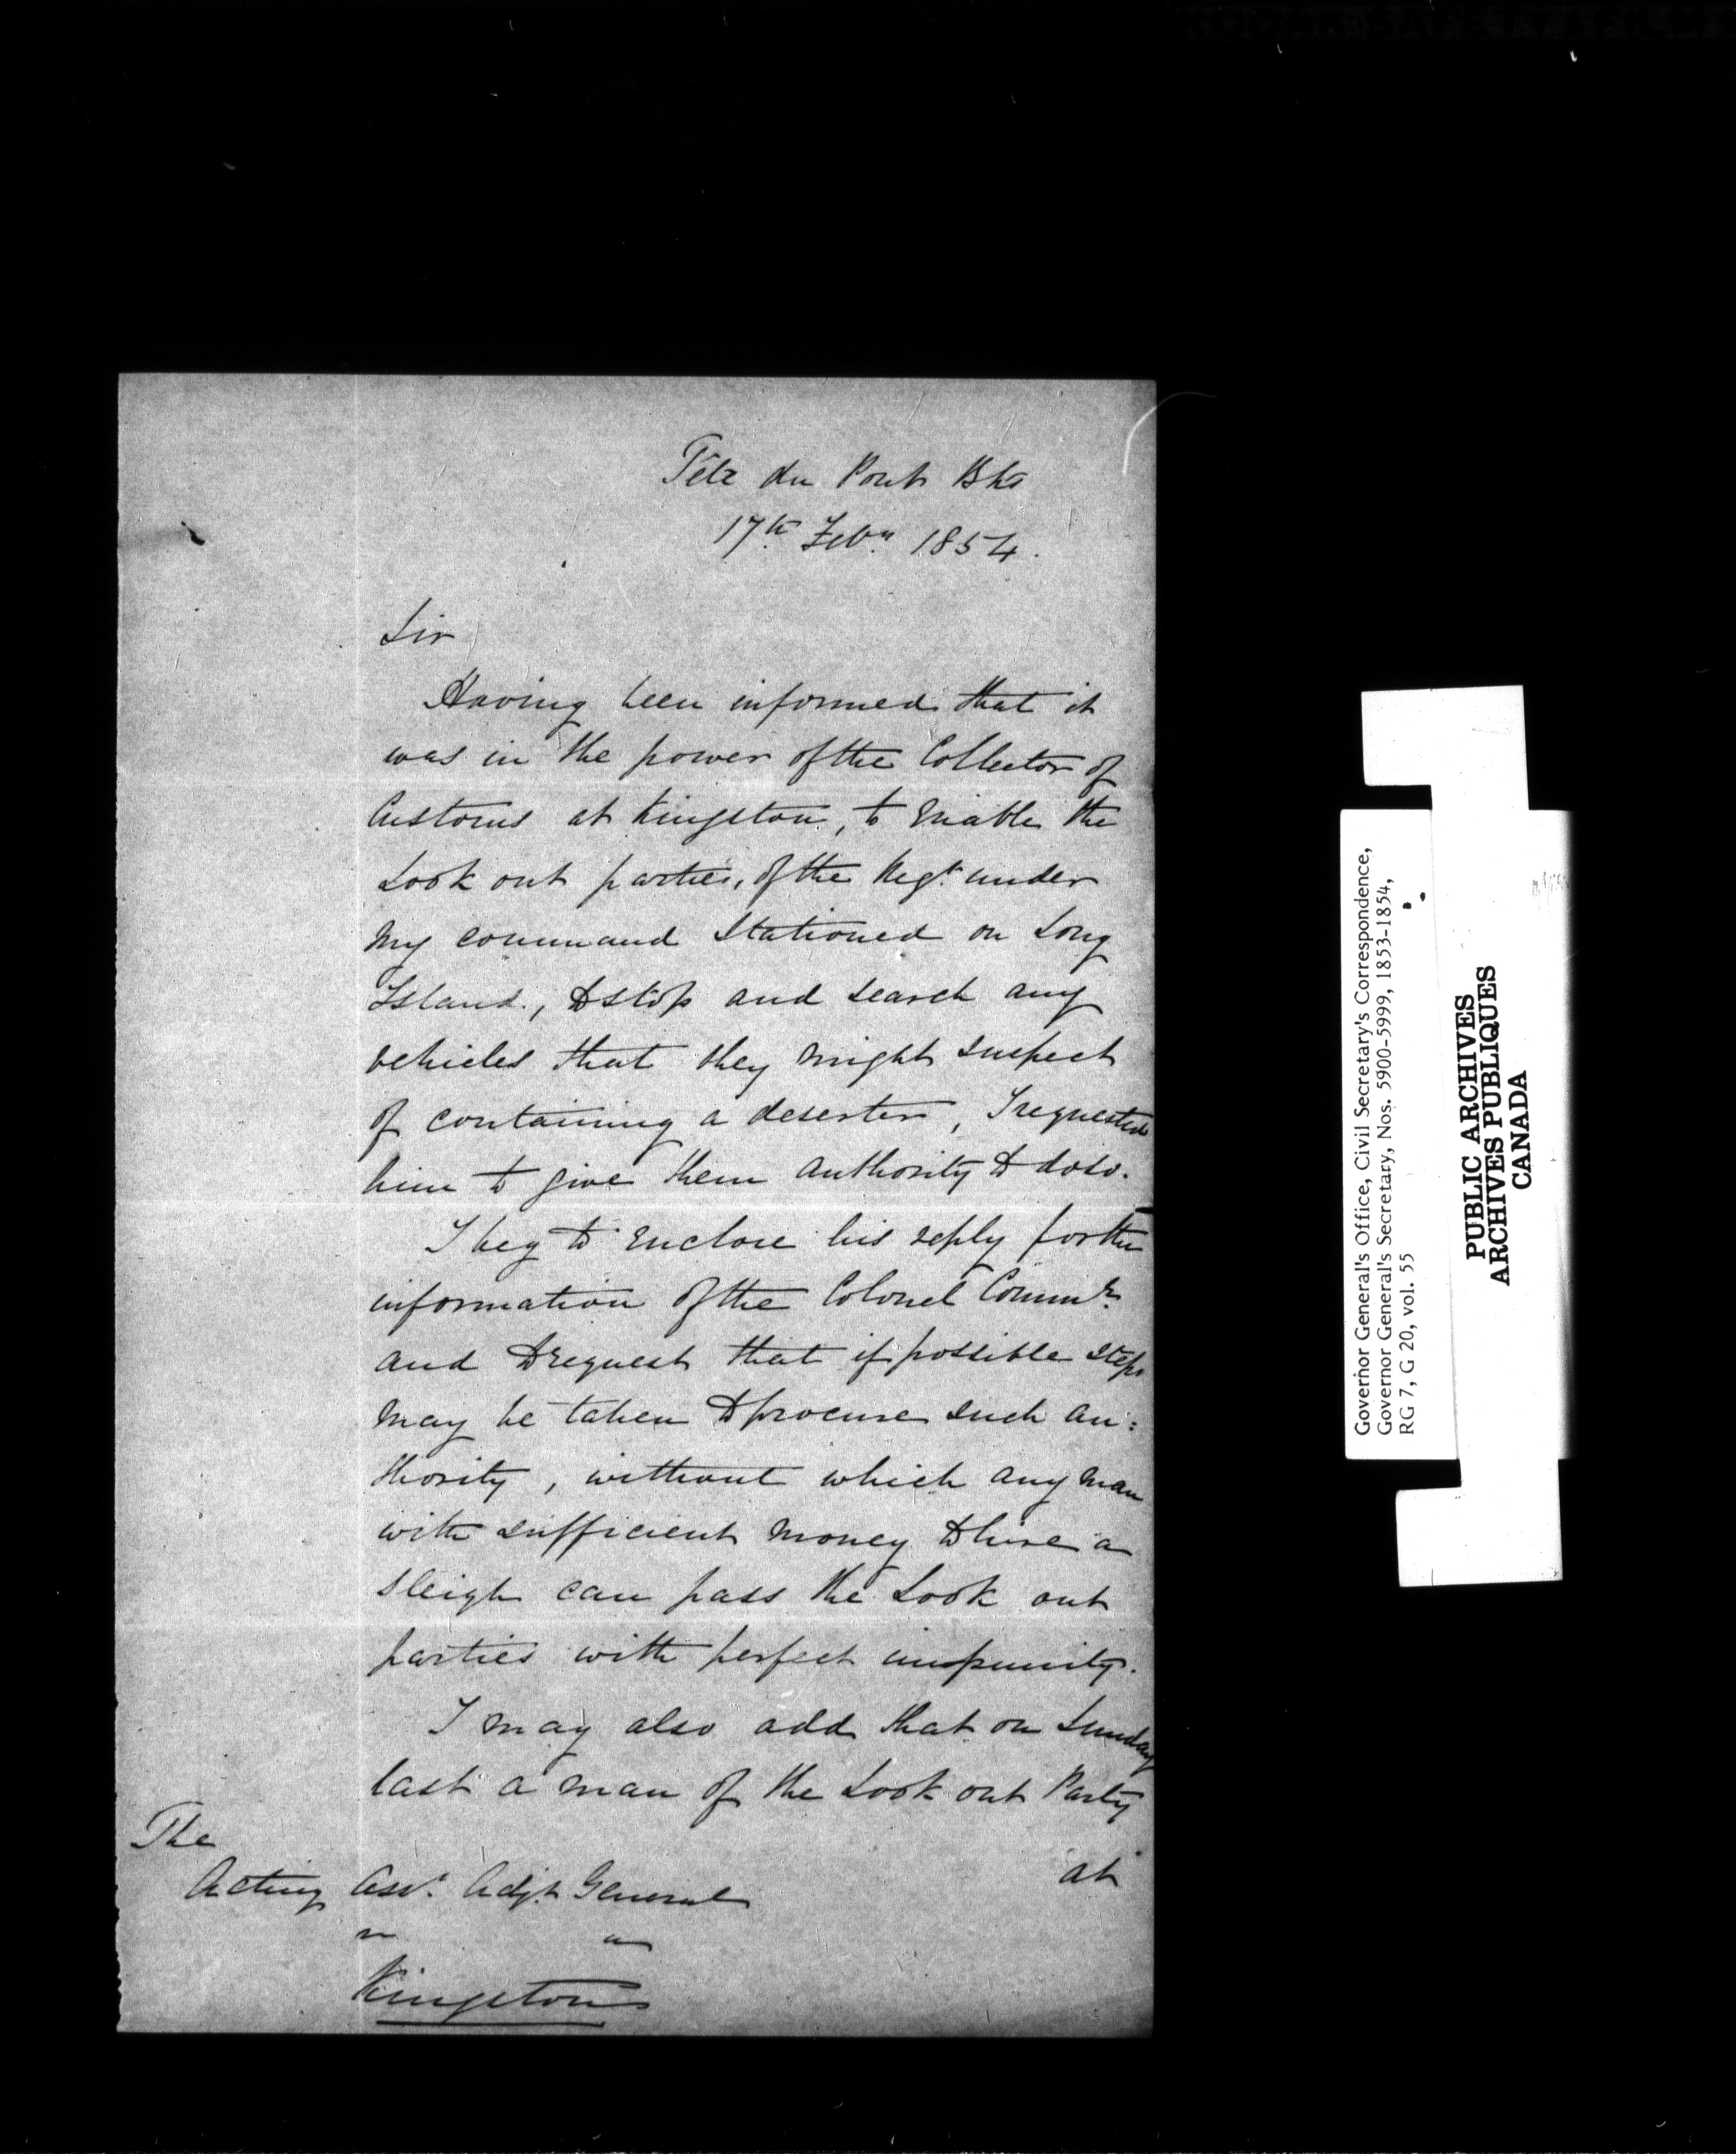 Tête du Pont Bks
17th Feby 1854.
Sir
Having been informed that it
was in the power of the Collector of
Customs at Kingston, to enable the
Look out parties, of the Regt. under
my command stationed on Long
Island, to stop and search any
vehicles that they might suspect
of containing a deserter, I requested
him to give them authority to do so.
I beg to enclose his reply for the
information of the Colonel Commdg.
and to request that if possible steps
may be taken to procure such au:
thority, without which any man
with sufficient money to hire a
sleigh can pass the Look out
parties with perfect impunity.
I may also add that on Sunday
last a man of the Look out Party
at
The
Acting Asst. Adjt. General
" "
Kingston
Governor General's Office, Civil Secretary's Correspondence,
Governor General's Secretary, Nos. 5900-5999, 1853-1854,
RG 7, G 20, vol. 55
PUBLIC ARCHIVES
ARCHIVES PUBLIQUES
CANADA